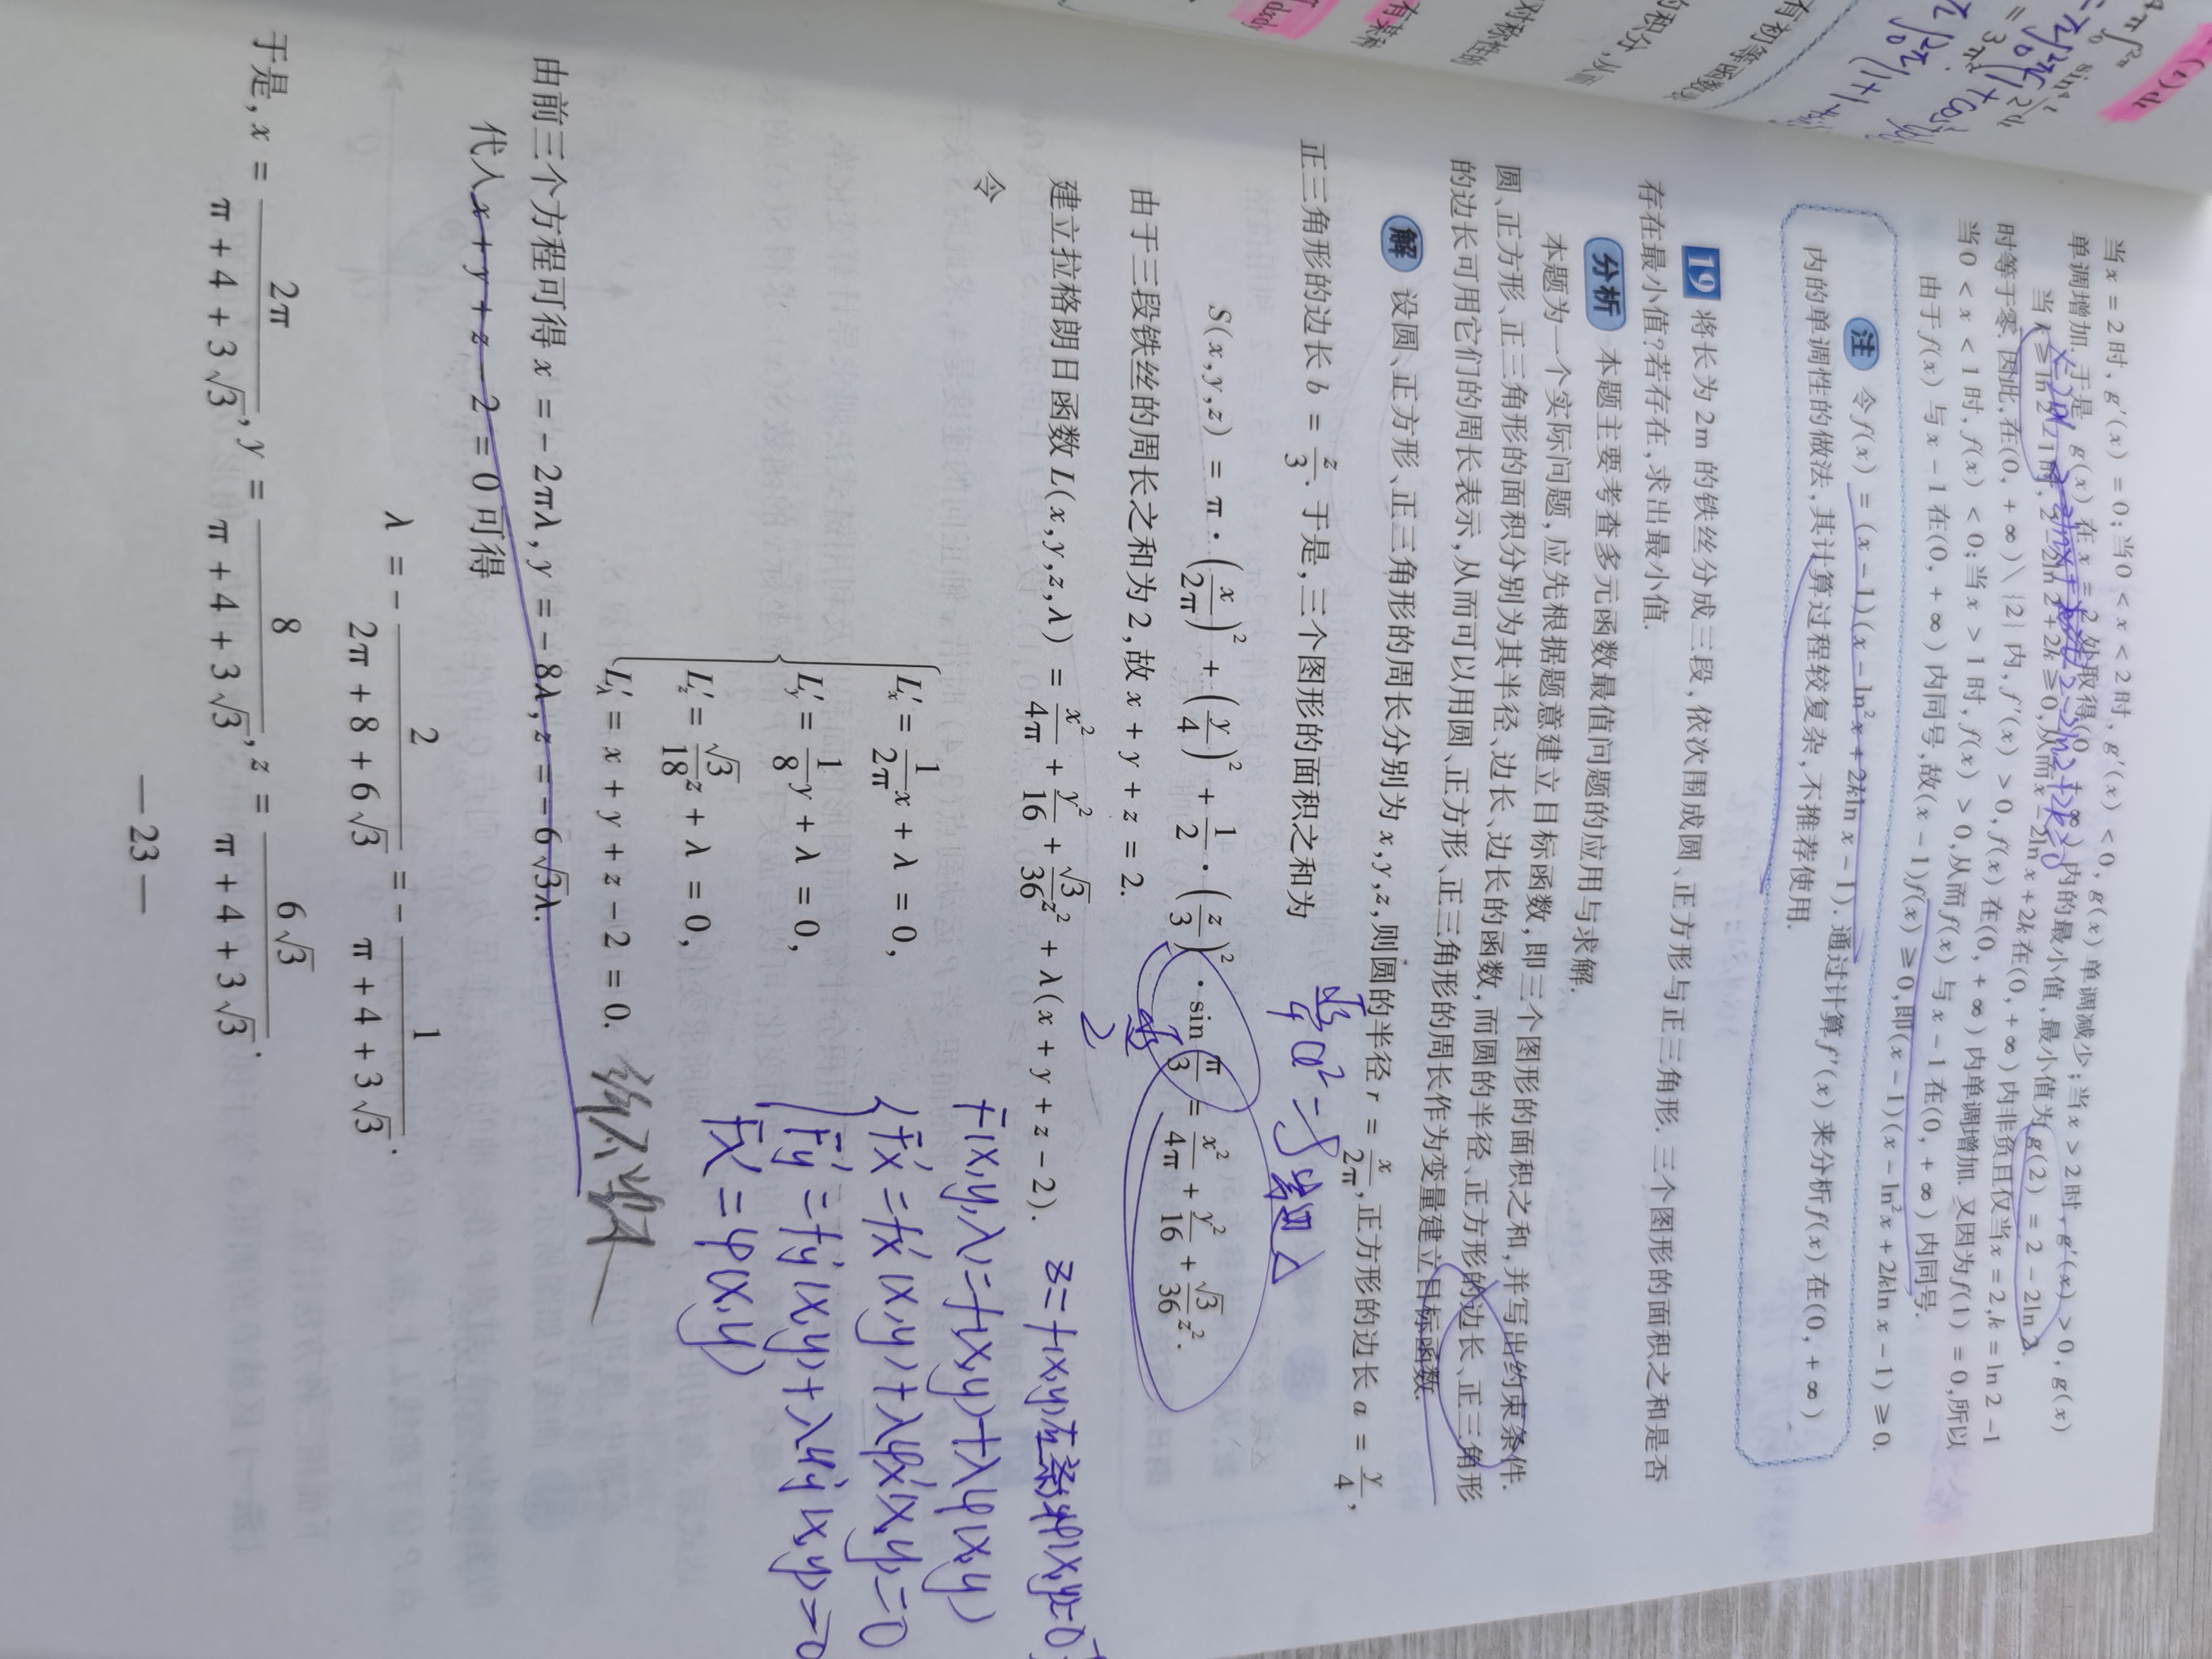 当 x = 2 时, g′(x) = 0; 当 0 < x < 2 时, g′(x) < 0, g(x) 单调减少; 当 x > 2 时, g′(x) > 0, g(x)
单调增加. 于是, g(x) 在 x = 2 处取得(0, + ∞) 内的最小值, 最小值为 g(2) = 2 - 2ln 2 + 2k.
当 k ≥ ln 2 - 1 时, 2 - 2ln 2 + 2k ≥ 0, 从而 x - 2ln x + 2k 在(0, + ∞) 内非负且仅当 x = 2, k = ln 2 - 1
时等于零. 因此, 在(0, + ∞)\{2} 内, f′(x) > 0, f(x) 在(0, + ∞) 内单调增加. 又因为 f(1) = 0, 所以
当 0 < x < 1 时, f(x) < 0; 当 x > 1 时, f(x) > 0, 从而 f(x) 与 x - 1 在(0, + ∞) 内同号.
由于 f(x) 与 x - 1 在(0, + ∞) 内同号, 故(x - 1)f(x) ≥ 0, 即(x - 1)(x - ln²x + 2kln x - 1) ≥ 0.
注 令 f(x) = (x - 1)(x - ln²x + 2kln x - 1). 通过计算 f′(x) 来分析 f(x) 在(0, + ∞)
内的单调性的做法, 其计算过程较复杂, 不推荐使用.
19 将长为 2m 的铁丝分成三段, 依次围成圆、正方形与正三角形. 三个图形的面积之和是否
存在最小值? 若存在, 求出最小值.
分析 本题主要考查多元函数最值问题的应用与求解.
本题为一个实际问题, 应先根据题意建立目标函数, 即三个图形的面积之和, 并写出约束条件.
圆、正方形、正三角形的面积分别为其半径、边长、边长的函数, 而圆的半径、正方形的边长、正三角形
的边长可用它们的周长表示, 从而可以用圆、正方形、正三角形的周长作为变量建立目标函数.
解 设圆、正方形、正三角形的周长分别为 x, y, z, 则圆的半径 r = x/2π, 正方形的边长 a = y/4,
正三角形的边长 b = z/3. 于是, 三个图形的面积之和为
S(x, y, z) = π · (x/2π)² + (y/4)² + 1/2 · (z/3)² · sin π/3 = x²/4π + y²/16 + √3/36 z².
由于三段铁丝的周长之和为 2, 故 x + y + z = 2.
建立拉格朗日函数 L(x, y, z, λ) = x²/4π + y²/16 + √3/36 z² + λ(x + y + z - 2).
z = f(x,y)在条件φ(x,y)=0下
令
F(x,y,λ) = f(x,y) + λφ(x,y)
L′x = 1/2π x + λ = 0,
Fx′ = fx′(x,y) + λφx′(x,y) = 0
L′y = 1/8 y + λ = 0,
Fy′ = fy′(x,y) + λφy′(x,y) = 0
L′z = √3/18 z + λ = 0,
Fλ′ = φ(x,y)
L′λ = x + y + z - 2 = 0.
由前三个方程可得 x = - 2πλ, y = - 8λ, z = - 6√3λ.
代入 x + y + z - 2 = 0 可得
λ = - 2/(2π + 8 + 6√3) = - 1/(π + 4 + 3√3).
于是, x = 2π/(π + 4 + 3√3), y = 8/(π + 4 + 3√3), z = 6√3/(π + 4 + 3√3).
— 23 —